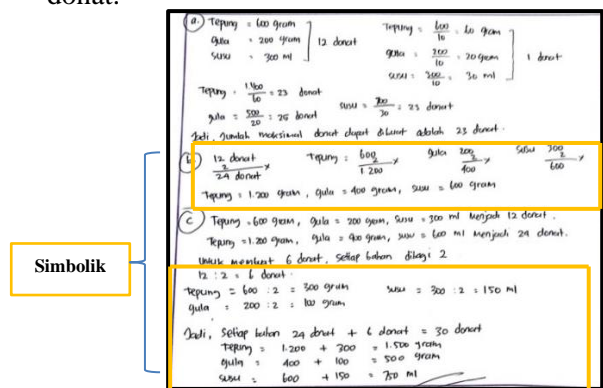 donat.
a. Tepung = 600 gram
gula = 200 gram
susu = 300 ml
12 donat
Tepung = 600/10 = 60 gram
gula = 200/10 = 20 gram
susu = 300/10 = 30 ml
1 donat
Tepung = 1.400/60 = 23 donat
gula = 500/20 = 25 donat
susu = 700/30 = 23 donat
Jadi, Jumlah maksimal donat dapat dibuat adalah 23 donat.
b 12 donat 2 x 24 donat
Tepung = 600 2 x 1.200
gula 200 2 x 400
susu 300 2 x 600
Tepung = 1.200 gram, gula = 400 gram, susu = 600 gram
c Tepung = 600 gram, gula = 200 gram, susu = 300 ml Menjadi 12 donat.
Tepung = 1.200 gram, gula = 400 gram, susu = 600 ml Menjadi 24 donat.
untuk membuat 6 donat, setiap bahan dibagi 2
12 : 2 = 6 donat
Tepung = 600 : 2 = 300 gram
susu = 300 : 2 = 150 ml
gula = 200 : 2 = 100 gram
Jadi, setiap bahan 24 donat + 6 donat = 30 donat
Tepung = 1.200 + 300 = 1.500 gram
gula = 400 + 100 = 500 gram
susu = 600 + 150 = 750 ml
Simbolik